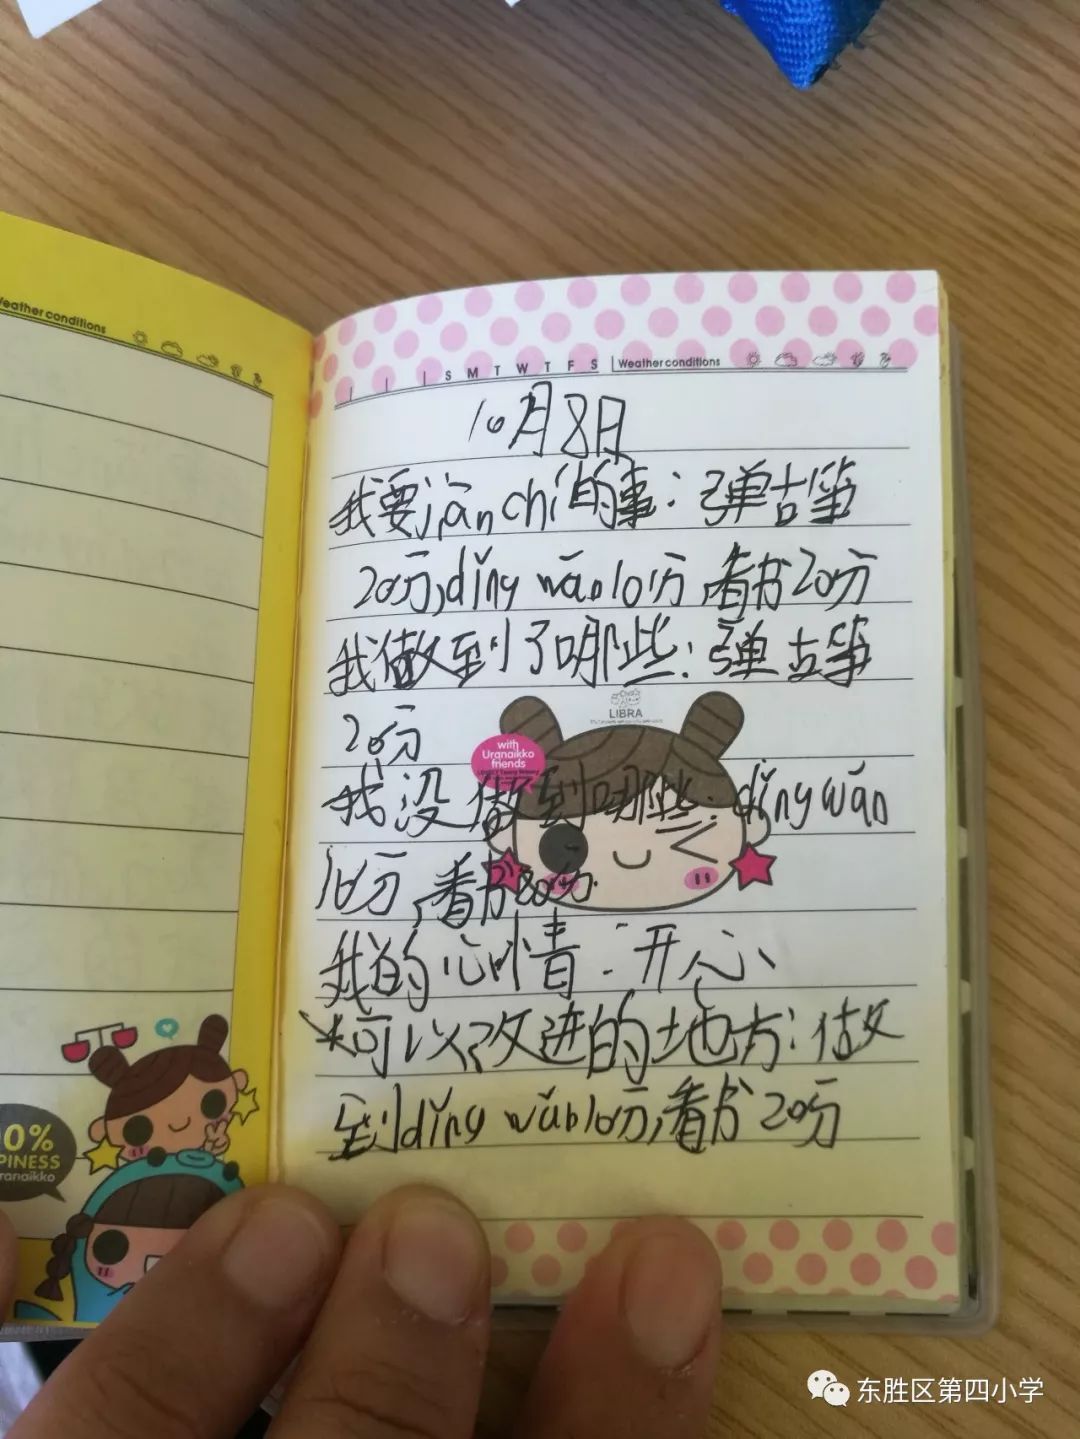 Weather conditions
S M T W T F S Weather conditions
10月8日
我要jiān chí的事：弹古筝
20分,dǐng wǎn10分,看书20分
我做到了哪些：弹古筝
20分
LIBRA
with
Uranaikko
friends
我没做到哪些：dǐng wǎn
10分,看书20分.
我的心情：开心、
*可以改进的地方：做
到dǐng wǎn10分,看书20分
东胜区第四小学